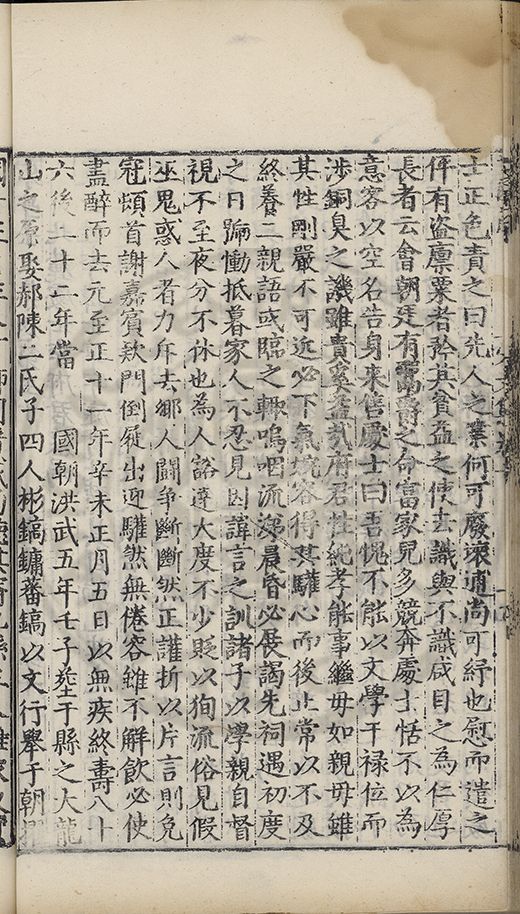 士正色責之曰先人之業何可廢汝通尚可紓也慰而遣之
伻有盜廪粟者矜其貧益之使去識與不識咸目之為仁厚
長者云會朝廷有鬻爵之命富家兒多競奔處士恬不以為
意客以空名告身来售處士曰吾愧不能以文學干禄位而
涉銅臭之譏雖貴奚益哉府君性純孝能事繼母如親母雖
其性剛嚴不可近必下氣婉容得其驩心而後止常以不及
終養二親語或臨之輙嗚咽流涕晨昏必展謁先祠遇初度
之日踊慟抵暮家人不忍見因諱言之訓諸子以學親自督
視不至夜分不休也為人豁達大度不少貶以徇流俗見假
巫鬼惑人者力斥去鄉人鬪争断断然正讙折以片言則免
冠頓首謝嘉賔欵門倒屣出迎驩然無倦容雖不解飲必使
盡醉而去元至正十一年辛未正月五日以無疾終壽八十
六後二十二年當　國朝洪武五年壬子塟于縣之大龍
山之原娶郝陳二氏子四人彬鎬鏞蕃鎬以文行舉于朝